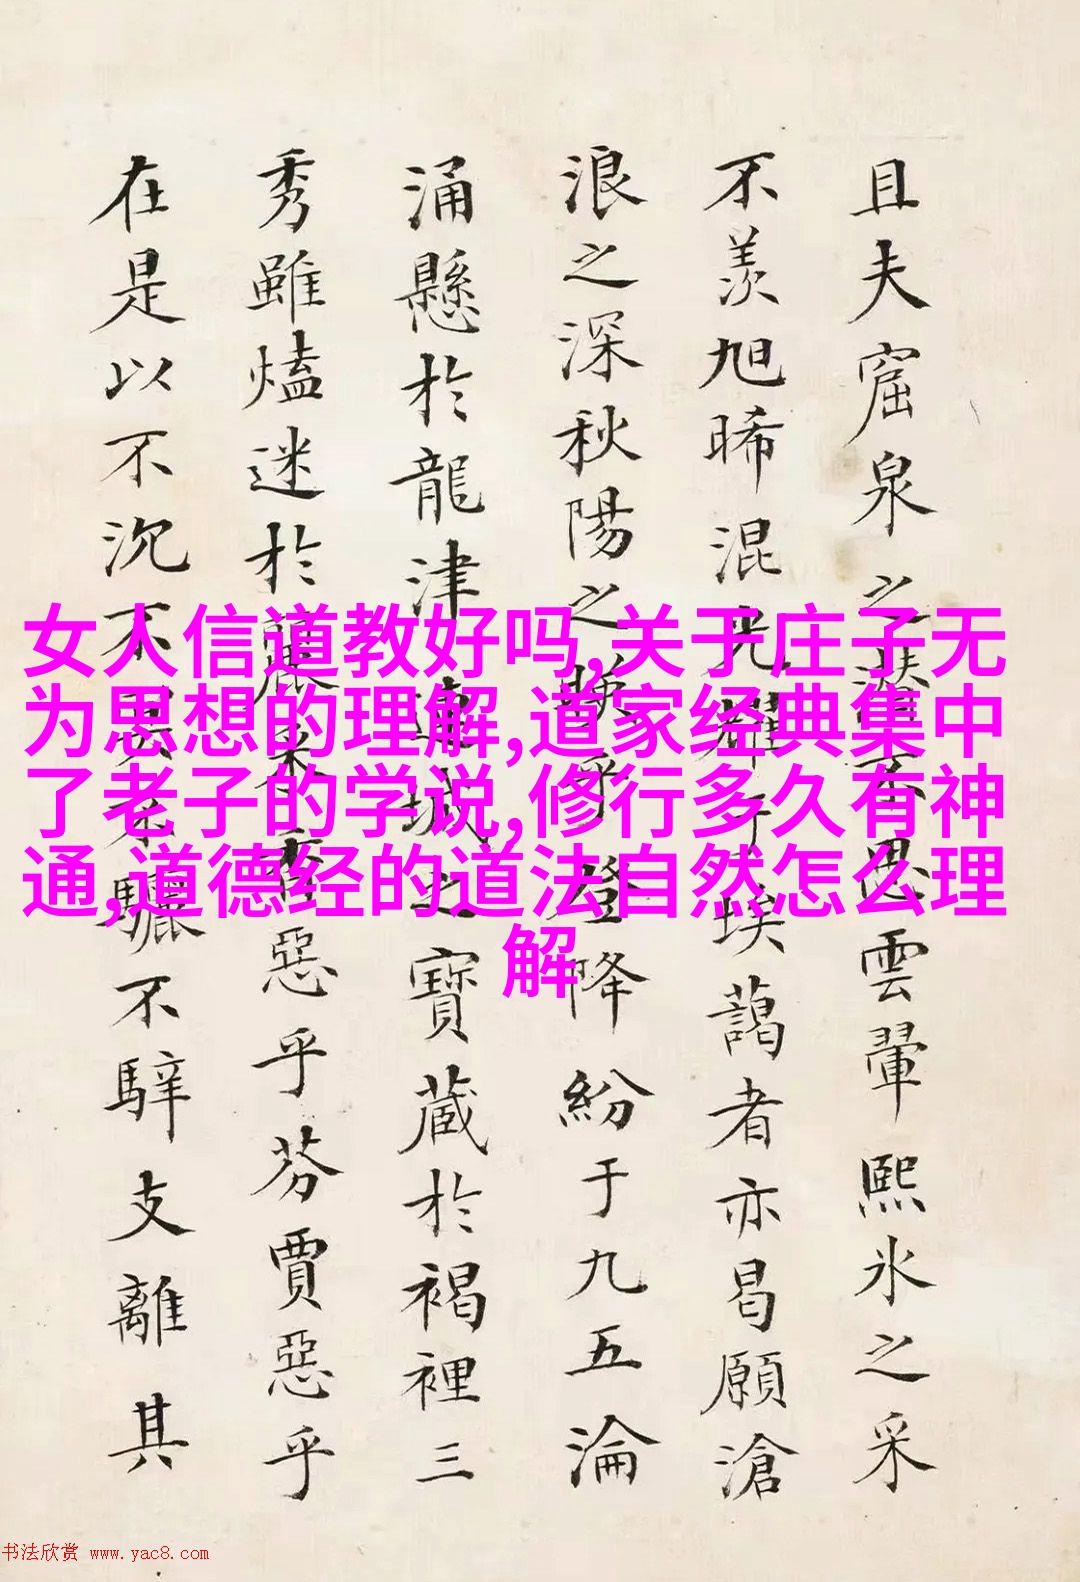 且夫窟泉之潜不思雲翬熙氷之采
不羡旭晞混光耀于埃藹者亦曷願滄
浪之深秋陽之映乎登降紛于九五淪
涌懸於龍津連城之寶藏於褐裡三
秀雖熆迷於麗采香惡乎芬賈惡乎
在是以不沉不 驪不騂支離其
女人信道教好吗,关于庄子无
为思想的理解,道家经典集中
了老子的学说,修行多久有神
通,道德经的道法自然怎么理
解
书法欣赏 www.yac8.com